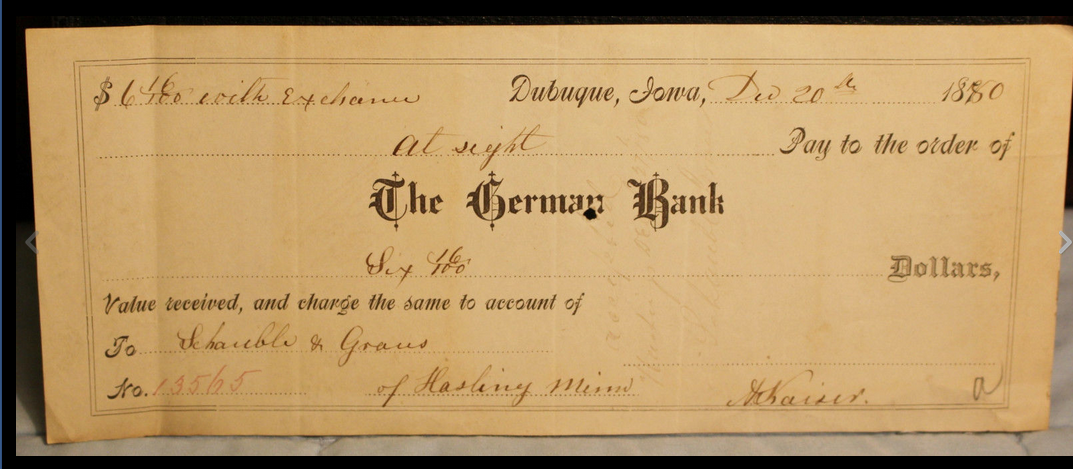 $ 6 46/100 with Exchange Dubuque, Iowa, Dec 20th 1880
At sight Pay to the order of
The German Bank
Six 46/100 Dollars,
Value received, and charge the same to account of
To Schauble & Graus
No. 13565 of Hasting Minn A Kaiser.
a